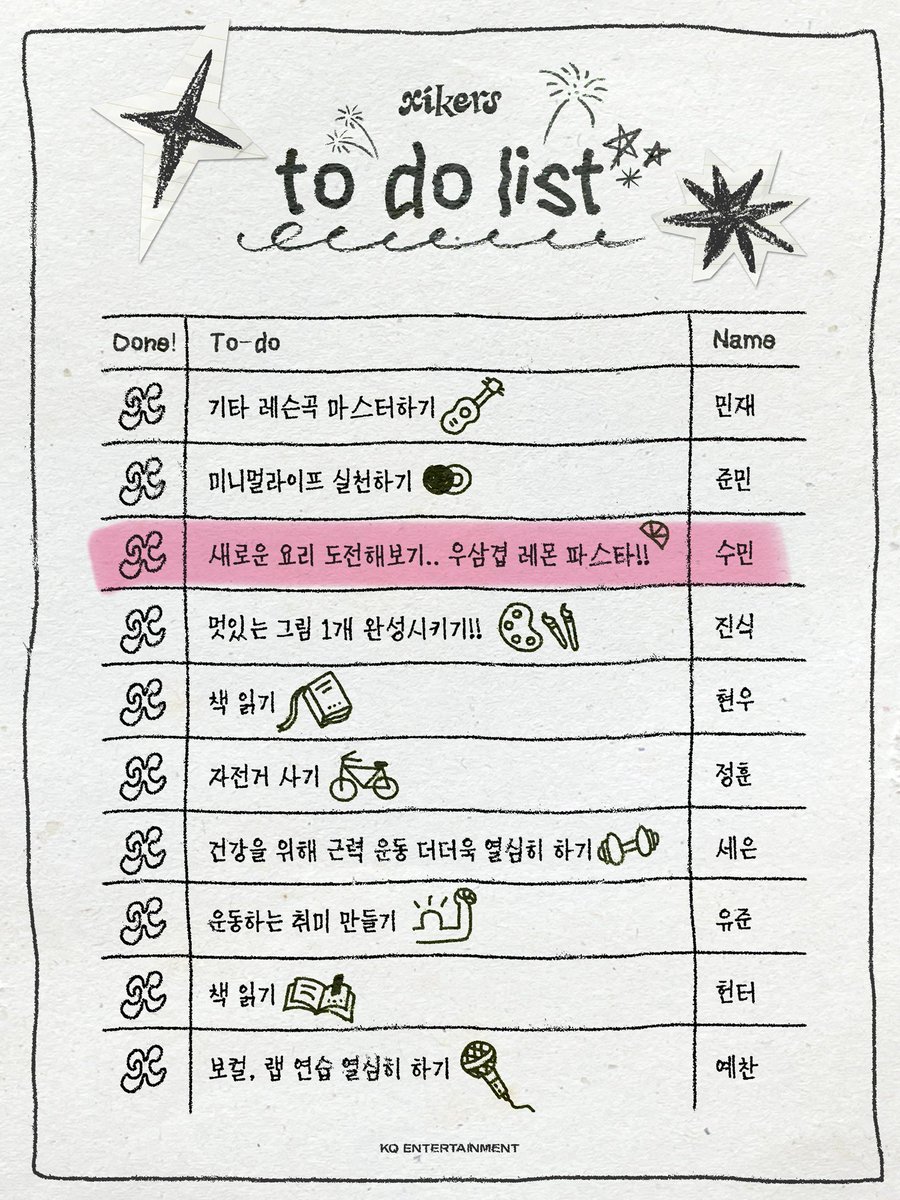 xikers
to do list
Done! To-do Name
기타 레슨곡 마스터하기 민재
미니멀라이프 실천하기 준민
새로운 요리 도전해보기.. 우삼겹 레몬 파스타!! 수민
멋있는 그림 1개 완성시키기!! 진식
책 읽기 현우
자전거 사기 정훈
건강을 위해 근력 운동 더더욱 열심히 하기 세은
운동하는 취미 만들기 유준
책 읽기 헌터
보컬, 랩 연습 열심히 하기 예찬
KQ ENTERTAINMENT